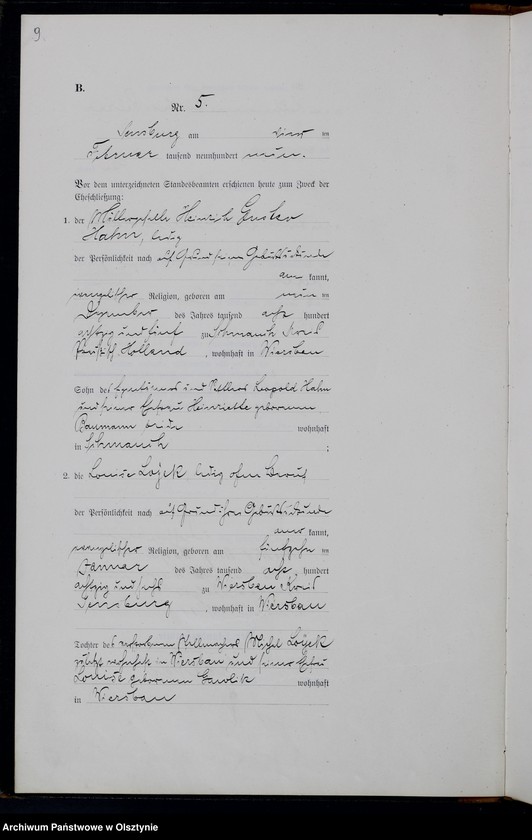 9
B.
Nr. 5.
Sensburg am vier ten
Februar tausend neunhundert neun.
Vor dem unterzeichneten Standesbeamten erschienen heute zum Zweck der
Eheschließung:
1. der Müllergeselle Heinrich Gustav
Hahn, ledig
der Persönlichkeit nach auf Grund seiner Geburtsurkunde
aner kannt,
evangelischer Religion, geboren am neun ten
Dezember des Jahres tausend acht hundert
achtzig und fünf zu Schmauch Kreis
Preußisch Holland, wohnhaft in Wiersbau
Sohn des Eigentümers und Leopold Hahn
und seiner Ehefrau Henriette geborenen
Baumann beide wohnhaft
in Schmauch ;
2. die Louise Lojek ledig ohne Beruf
der Persönlichkeit nach auf Grund ihrer Geburtsurkunde
aner kannt,
evangelischer Religion, geboren am fünfzehn ten
Januar des Jahres tausend acht hundert
achtzig und sechs zu Wiersbau Kreis
Sensburg, wohnhaft in Wiersbau
Tochter des verstorbenen Stellmachers Michel Lojek
zuletzt wohnhaft in Wiersbau und seiner Ehefrau
Louise geborenen Gawlik wohnhaft
in Wiersbau
Archiwum Państwowe w Olsztynie